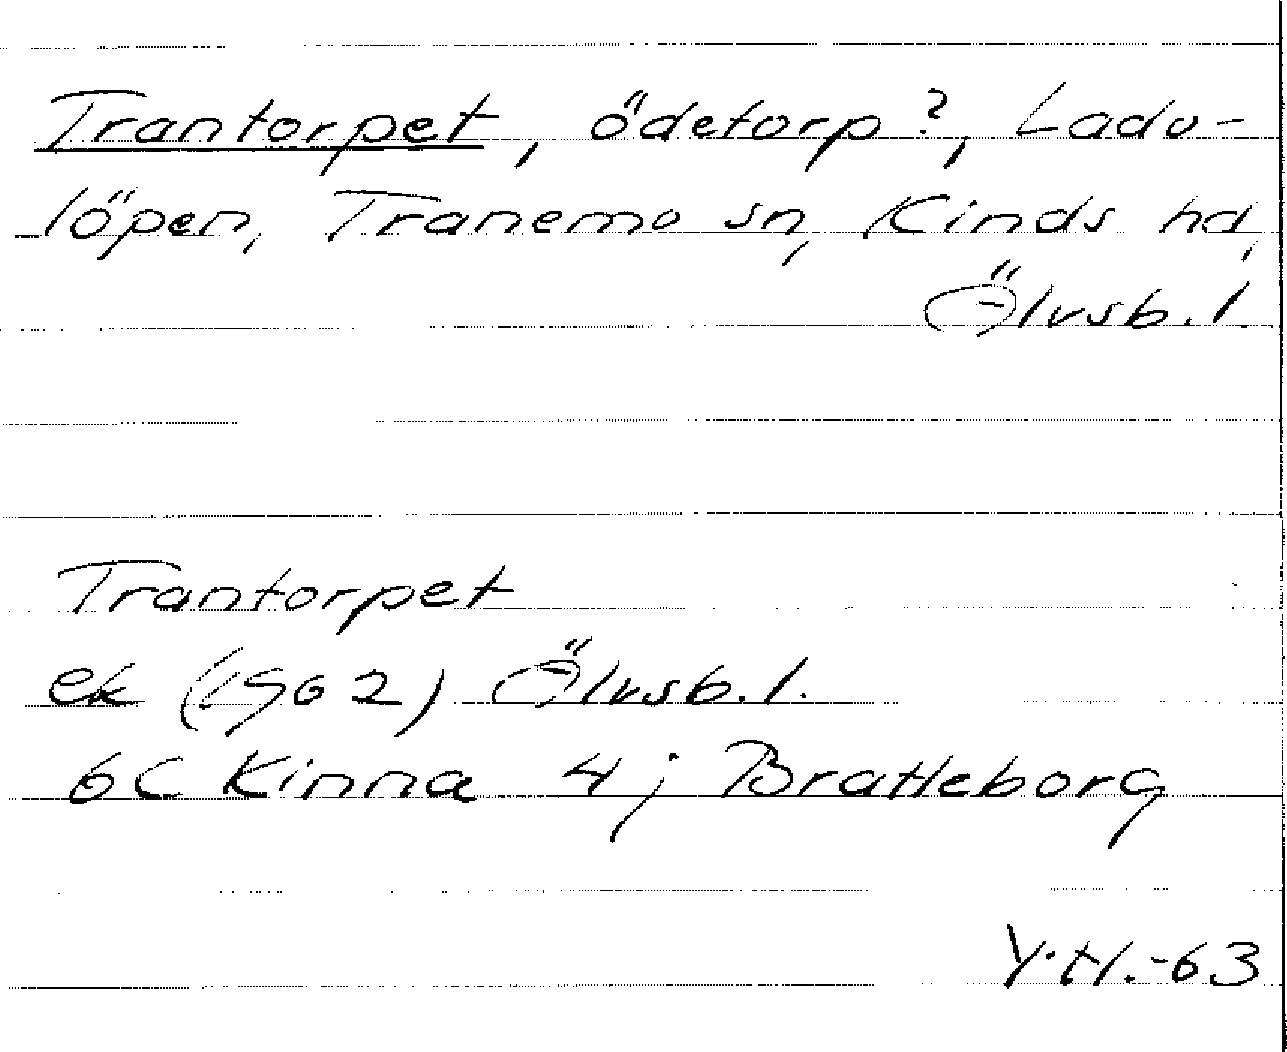 Trantorpet, ödetorp?, Ladu-
löpen, Tranemo sn, Kinds hd,
Älvsb. l.
Trantorpet
ek (1962) Älvsb. l.
6C Kinna 4 j Brattleborg
Y.H.-63